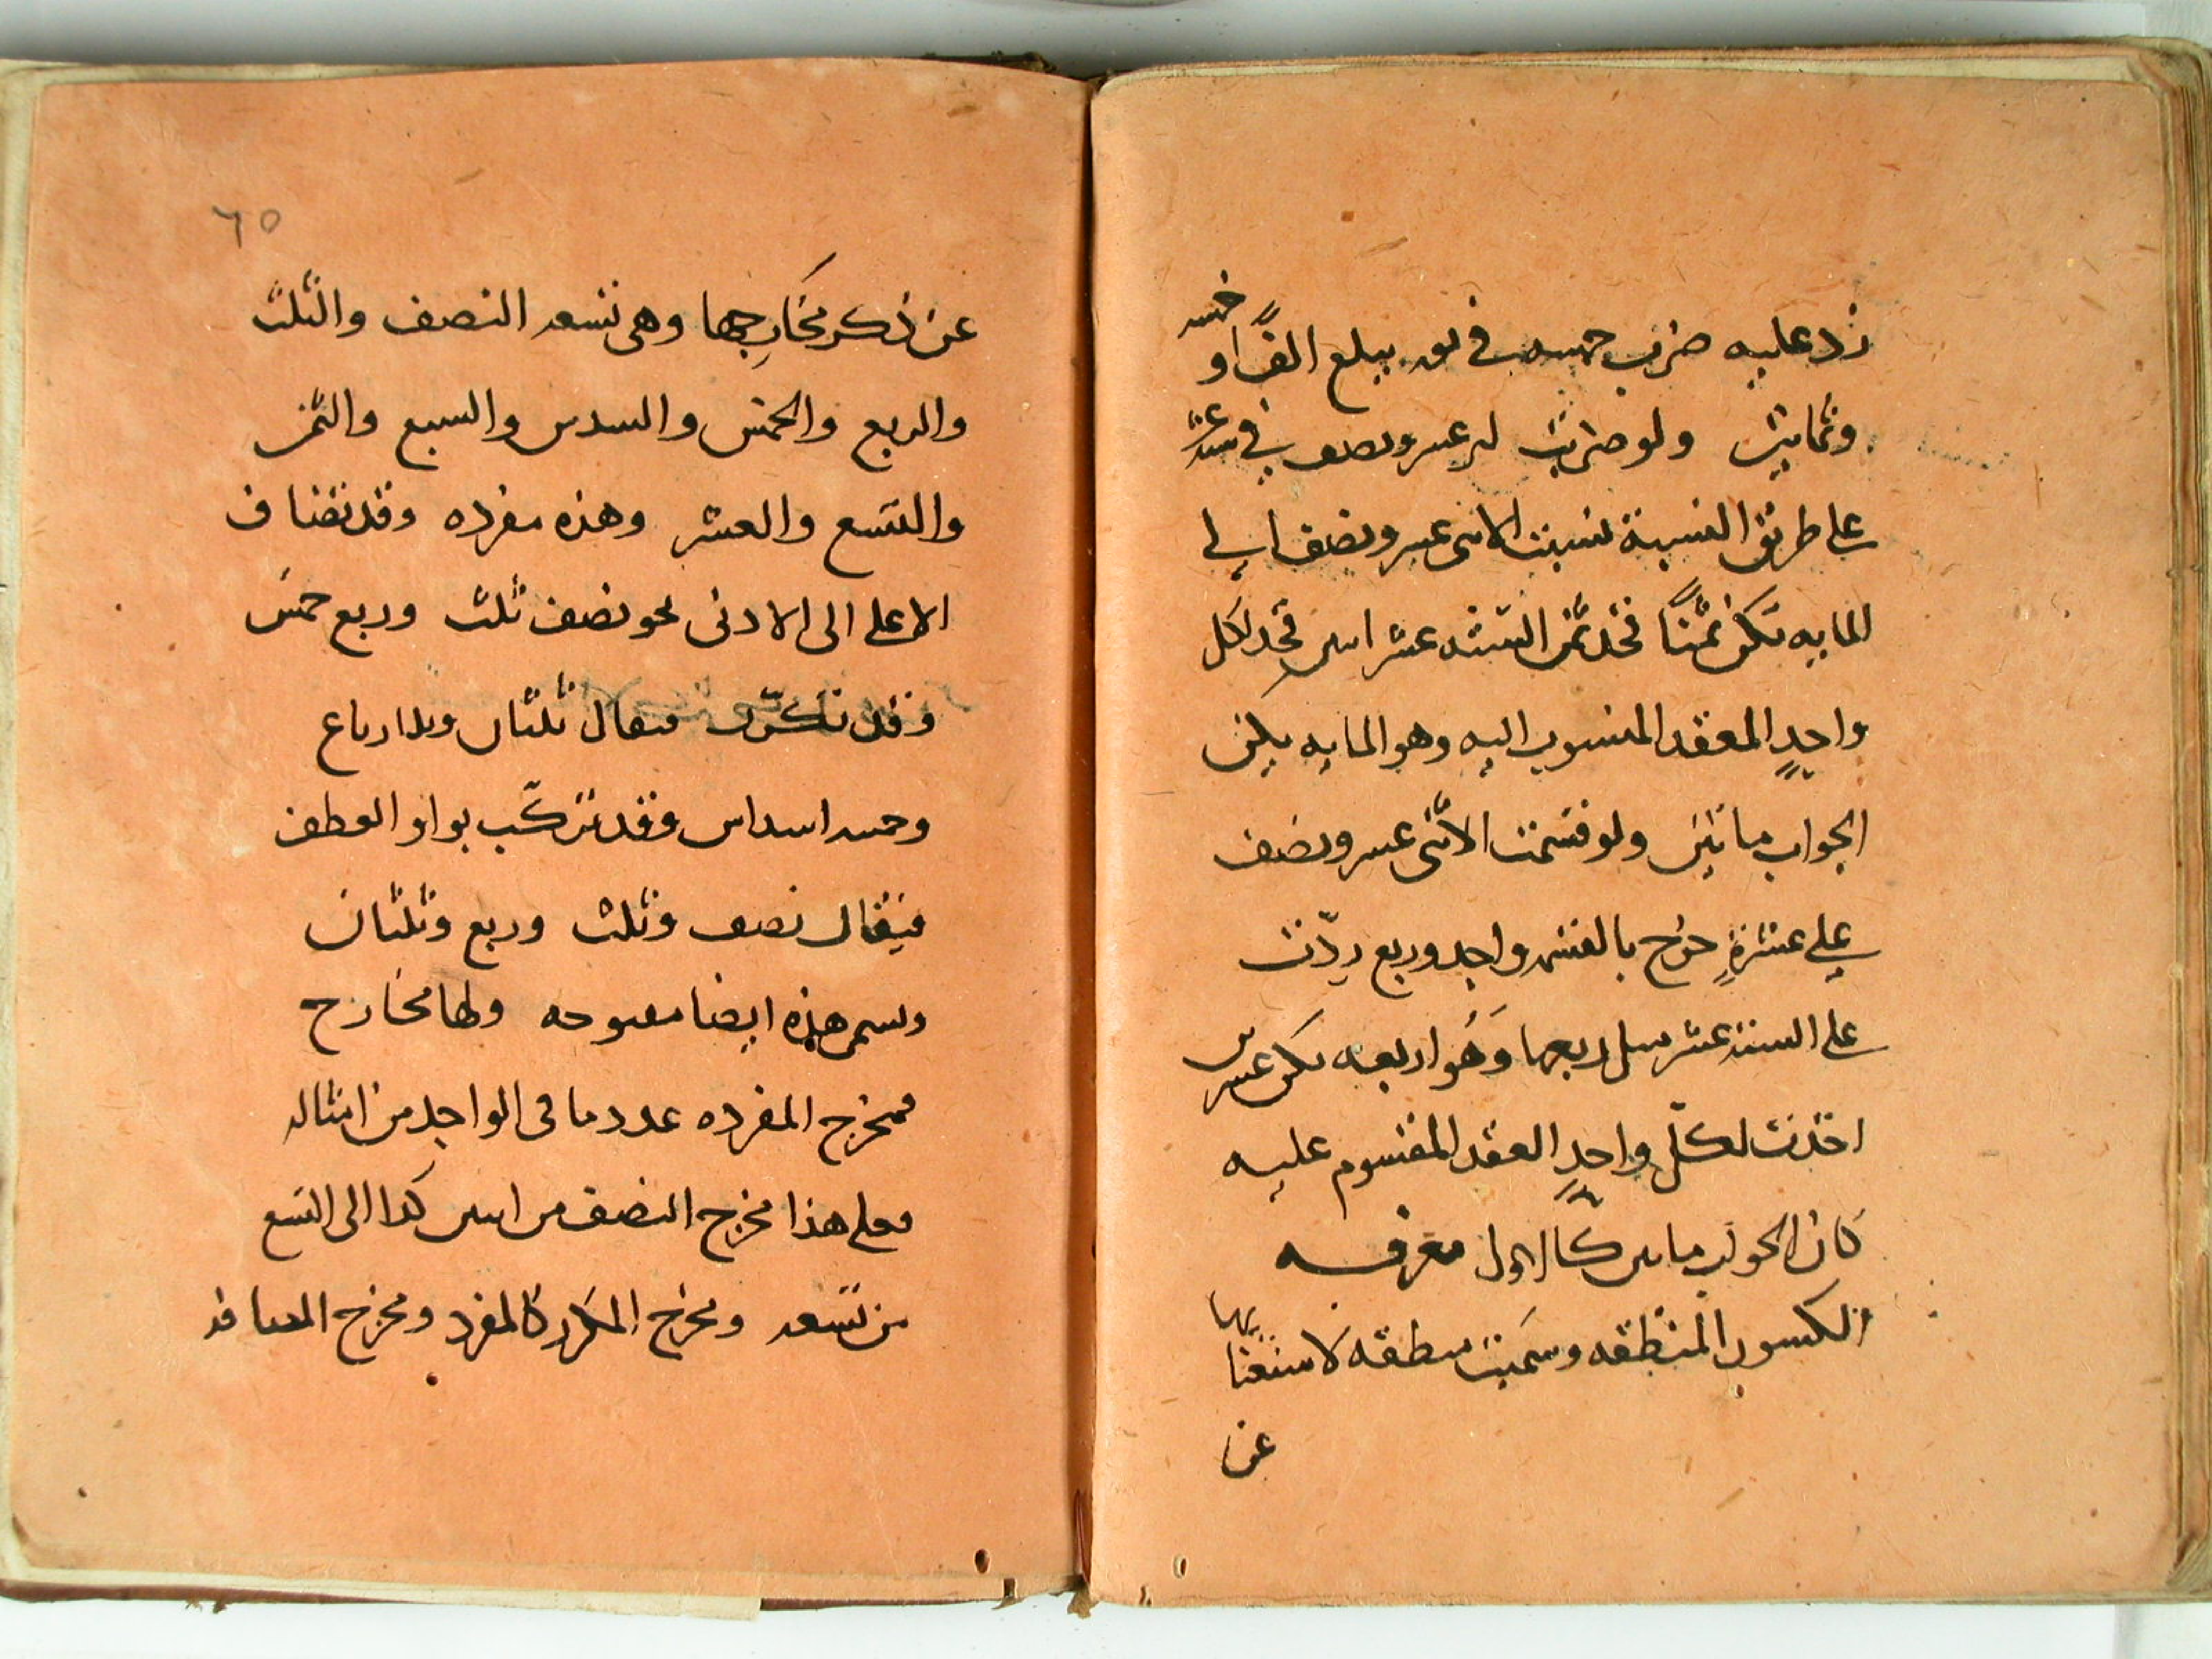 زد عليه ضرب خمسه في يبلغ الفًا و خمسه
وثمانين ولو ضربت عشر ونصف في ستة عشر
على طريق النسبة نسبت الاثنى عشر ونصف الى
المايه تكن ثمنًا فخذ ثمن الستة عشر اثنين فخذ لكل
واحدٍ العقد المنسوب اليه وهو المايه يكن
الجواب مائتين ولو قسمت الاثنى عشر ونصف
على عشرةٍ خرج بالقسم واحد وربع زدت
على الستة عشر مثل ربعها وَهُو اربعه تكن عشرين
اخذت لكلّ واحدٍ العقد المقسوم عليه
كان الجواب مائتين كالاول معرفه
الكسور المنطقه وسميت منطقه لاستغنائها
عن
٦٥
عن ذكر مخارجها وهى تسعه النصف والثلث
والربع والخمس والسدس والسبع والثمن
والتسع والعشر وهذه مفرده وقد تضاف
الاعلى الى الادنى نحو نصف ثلث وربع خمس
وقد تتكرّر فيقال ثلثان وثلاثة ارباع
وخمسه اسداس وقد تتركّب بواو العطف
فيقال نصف وثلث وربع وثلثان
وتسمى هذه ايضا مفتوحه ولها مخارج
فمخرج المفرده عدد ما فى الواحد من امثاله
فعلى هذا مخرج النصف من اثنين كذا الى التسع
من تسعه ومخرج المكرر كالمفرد ومخرج المضافه